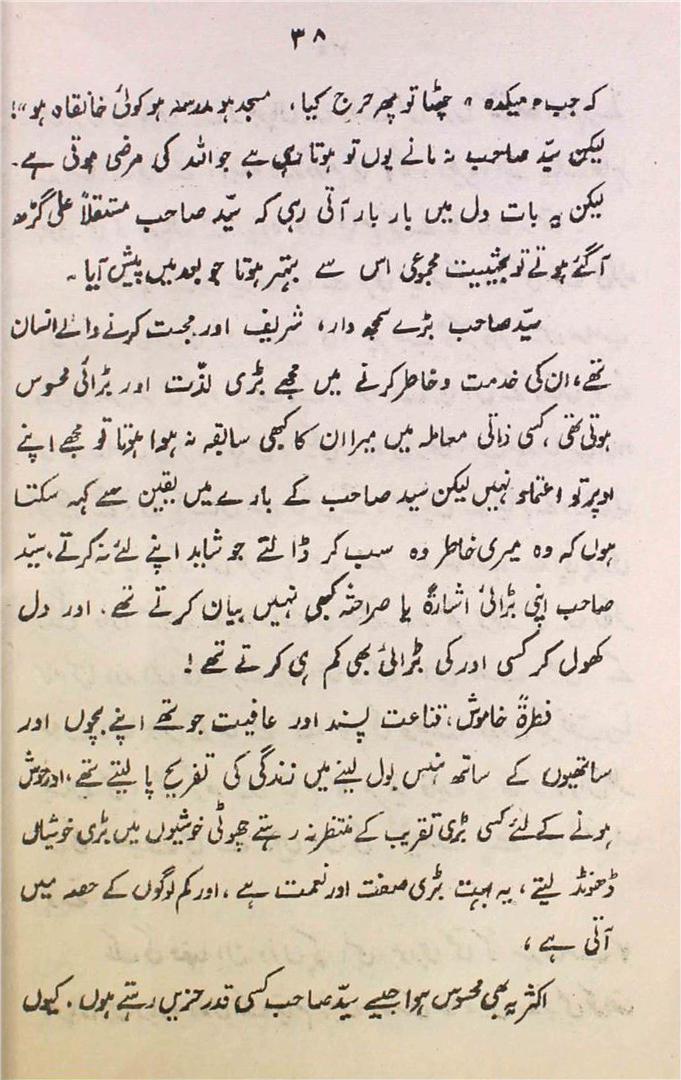 ۳۸
کہ جب "میکدہ" چھٹا تو پھر حرج کیا، مسجد ہو مدرسہ ہو کوئی خانقاہ ہو"!
لیکن سیّد صاحب نہ مانے یوں تو ہوتا وہی ہے جو اللہ کی مرضی ہوتی ہے۔
لیکن یہ بات دل میں بار بار آتی رہی کہ سیّد صاحب مستقلاً علی گڑھ
آگئے ہوتے تو بحیثیت مجموعی اس سے بہتر ہوتا جو بعد میں پیش آیا۔
سیّد صاحب بڑے سمجھ دار، شریف اور محبت کرنے والے انسان
تھے، ان کی خدمت و خاطر کرنے میں مجھے بڑی لذّت اور بڑائی محسوس
ہوتی تھی، کسی ذاتی معاملہ میں میرا ان کا کبھی سابقہ نہ ہوا ہوتا تو مجھے اپنے
اوپر تو اعتماد نہیں لیکن سید صاحب کے بارے میں یقین سے کہہ سکتا
ہوں کہ وہ میری خاطر وہ سب کر ڈالتے جو شاید اپنے لئے نہ کرتے، سیّد
صاحب اپنی بڑائی اشارۃً یا صراحتہً کبھی نہیں بیان کرتے تھے۔ اور دل
کھول کر کسی اور کی بڑائی بھی کم ہی کرتے تھے!
فطرۃً خاموش، قناعت پسند اور عافیت جو تھے اپنے بچوں اور
ساتھیوں کے ساتھ ہنس بول لینے میں زندگی کی تفریح پا لیتے تھے، اور خوش
ہونے کے لئے کسی بڑی تقریب کے منتظر نہ رہتے چھوٹی خوشیوں میں بڑی خوشیاں
ڈھونڈ لیتے، یہ بہت بڑی صفت اور نعمت ہے، اور کم لوگوں کے حصہ میں
آتی ہے،
اکثر یہ بھی محسوس ہوا جیسے سیّد صاحب کسی قدر حزیں رہتے ہوں۔ کیوں